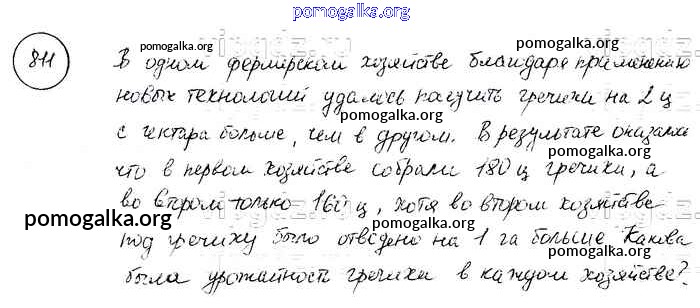 pomogalka.org
811
pomogalka.org
pomogalka.org
В одном фермерском хозяйстве благодаря применению
новых технологий удалось получить гречихи на 2 ц
pomogalka.org
с гектара больше, чем в другом. В результате оказалось
pomogalka.org
что в первом хозяйстве собрали 180 ц гречихи, а
pomogalka.org
во втором только 160 ц, хотя во втором хозяйстве
pomogalka.org
под гречиху было отведено на 1 га больше Какова
pomogalka.org
была урожайность гречихи в каждом хозяйстве?
pomogalka.org